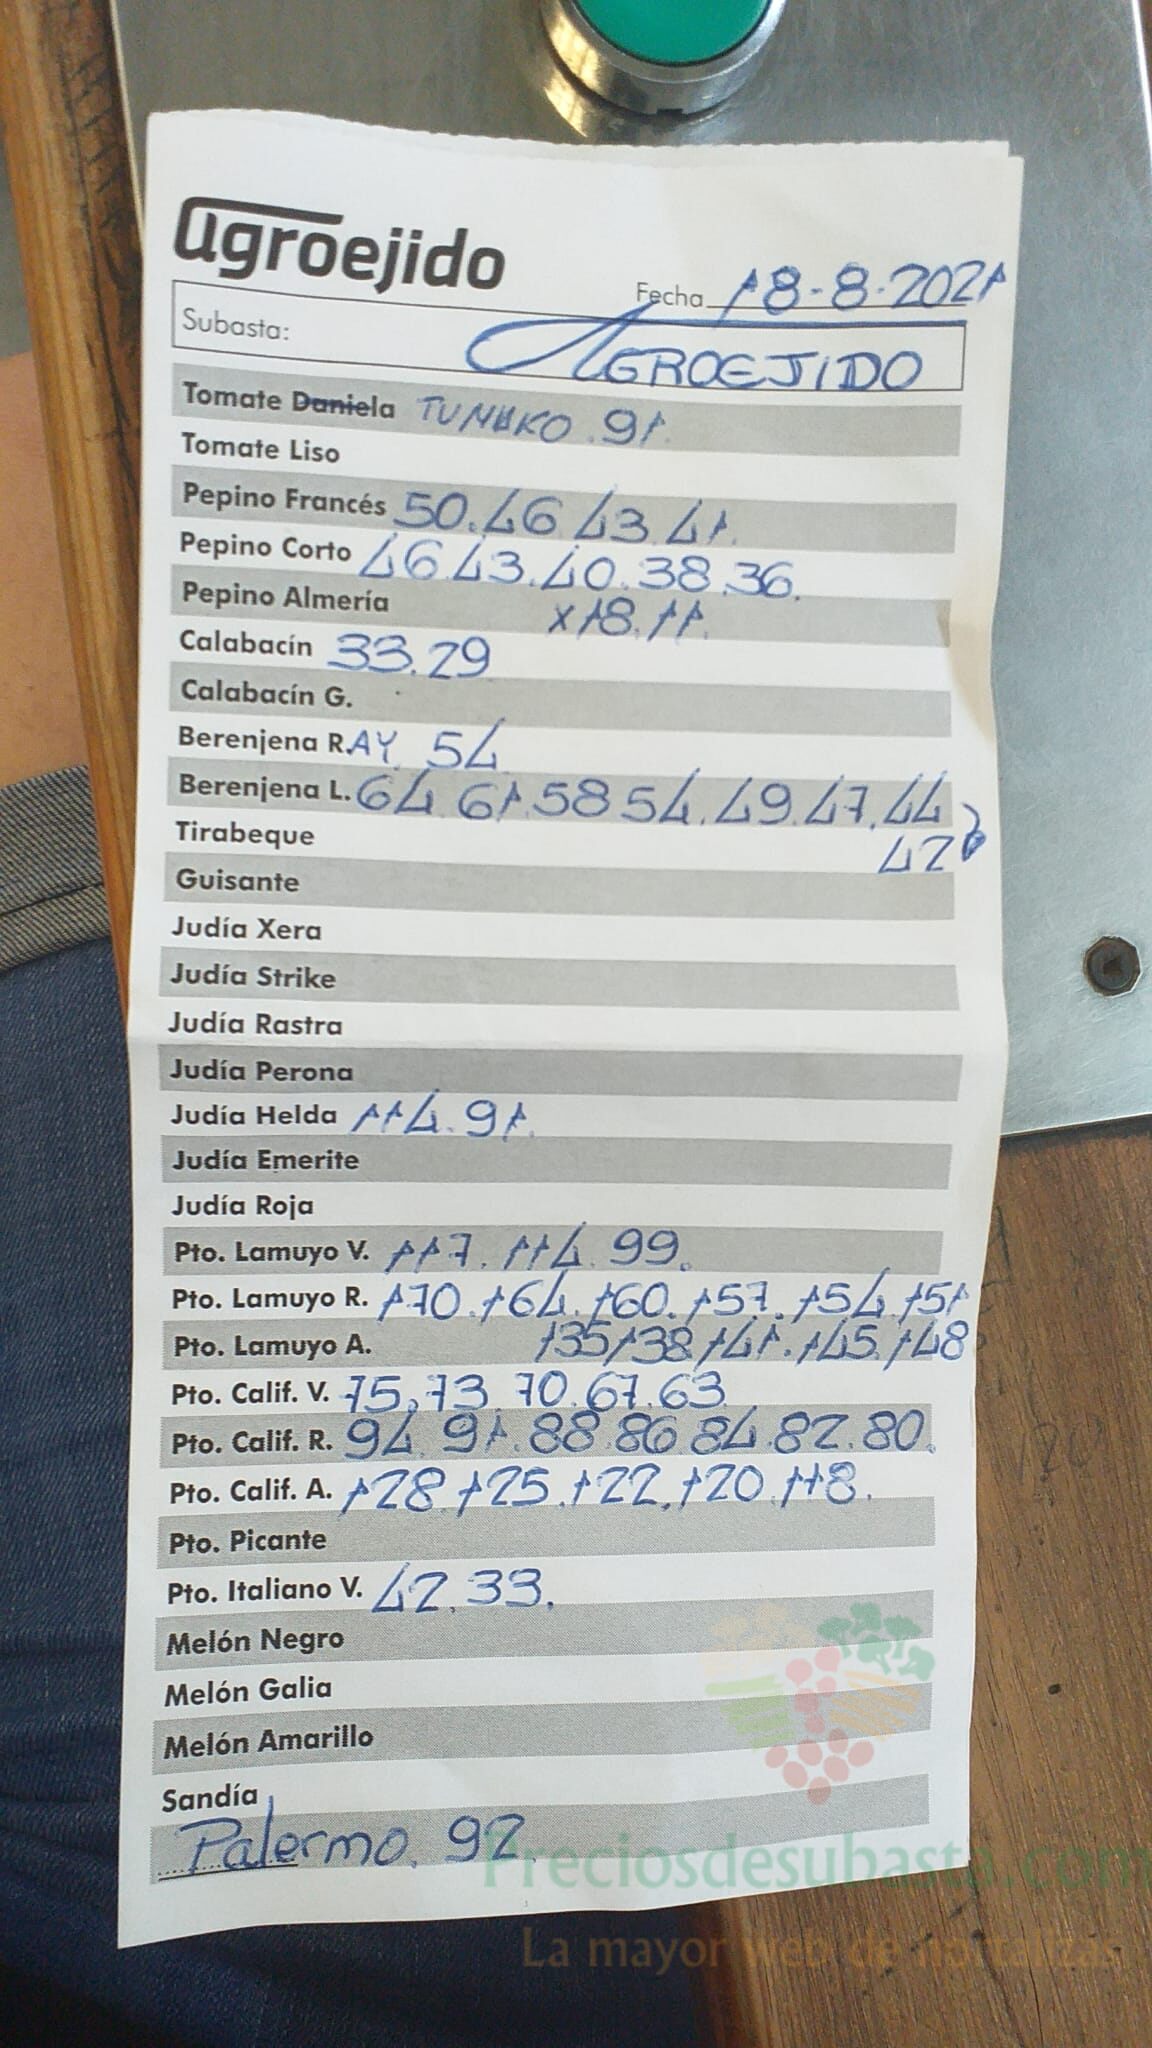 agroejido
Fecha 18-8-2021
Subasta: AGROEJIDO
Tomate Daniela TUNAKO. 91.
Tomate Liso
Pepino Francés 50.46 43.41.
Pepino Corto 46 43.40.38.36.
Pepino Almería x18.11.
Calabacín 33.29
Calabacín G.
Berenjena R.AY 54
Berenjena L. 64 61.58 54.49.47.44
Tirabeque 42
Guisante
Judía Xera
Judía Strike
Judía Rastra
Judía Perona
Judía Helda 114.91.
Judía Emerite
Judía Roja
Pto. Lamuyo V. 117.114.99.
Pto. Lamuyo R. 170.164.160.157.154.151
Pto. Lamuyo A. 135 138 141.145.148
Pto. Calif. V. 75.73.70.67.63
Pto. Calif. R. 94 91.88 86 84.82.80.
Pto. Calif. A. 128.125.122.120.118.
Pto. Picante
Pto. Italiano V. 42.33.
Melón Negro
Melón Galia
Melón Amarillo
Sandía
Palermo. 92.
Preciosdesubasta.com
La mayor web de hortalizas